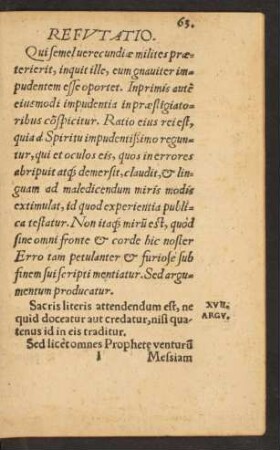 65.
REFVTATIO.
Qui semel uerecundiæ milites præ-
terierit, inquit ille, eum gnauiter im-
pudentem esse oportet. Inprimis autē
eiusmodi impudentia in præstigiato-
ribus cōspicitur. Ratio eius rei est,
quia à Spiritu impudentissimo regun-
tur, qui et oculos eis, quos in errores
abripuit atq; demersit, claudit, & lin-
guam ad maledicendum miris modis
extimulat, id quod experientia publi-
ca testatur. Non itaq; mirū est, quòd
sine omni fronte & corde hic noster
Erro tam petulanter & furiosè sub
finem sui scripti mentiatur. Sed argu-
mentum producatur.
Sacris literis attendendum est, ne
quid doceatur aut credatur, nisi qua-
tenus id in eis traditur.
XVII.
ARGV.
Sed licèt omnes Prophetę venturū
I Messiam